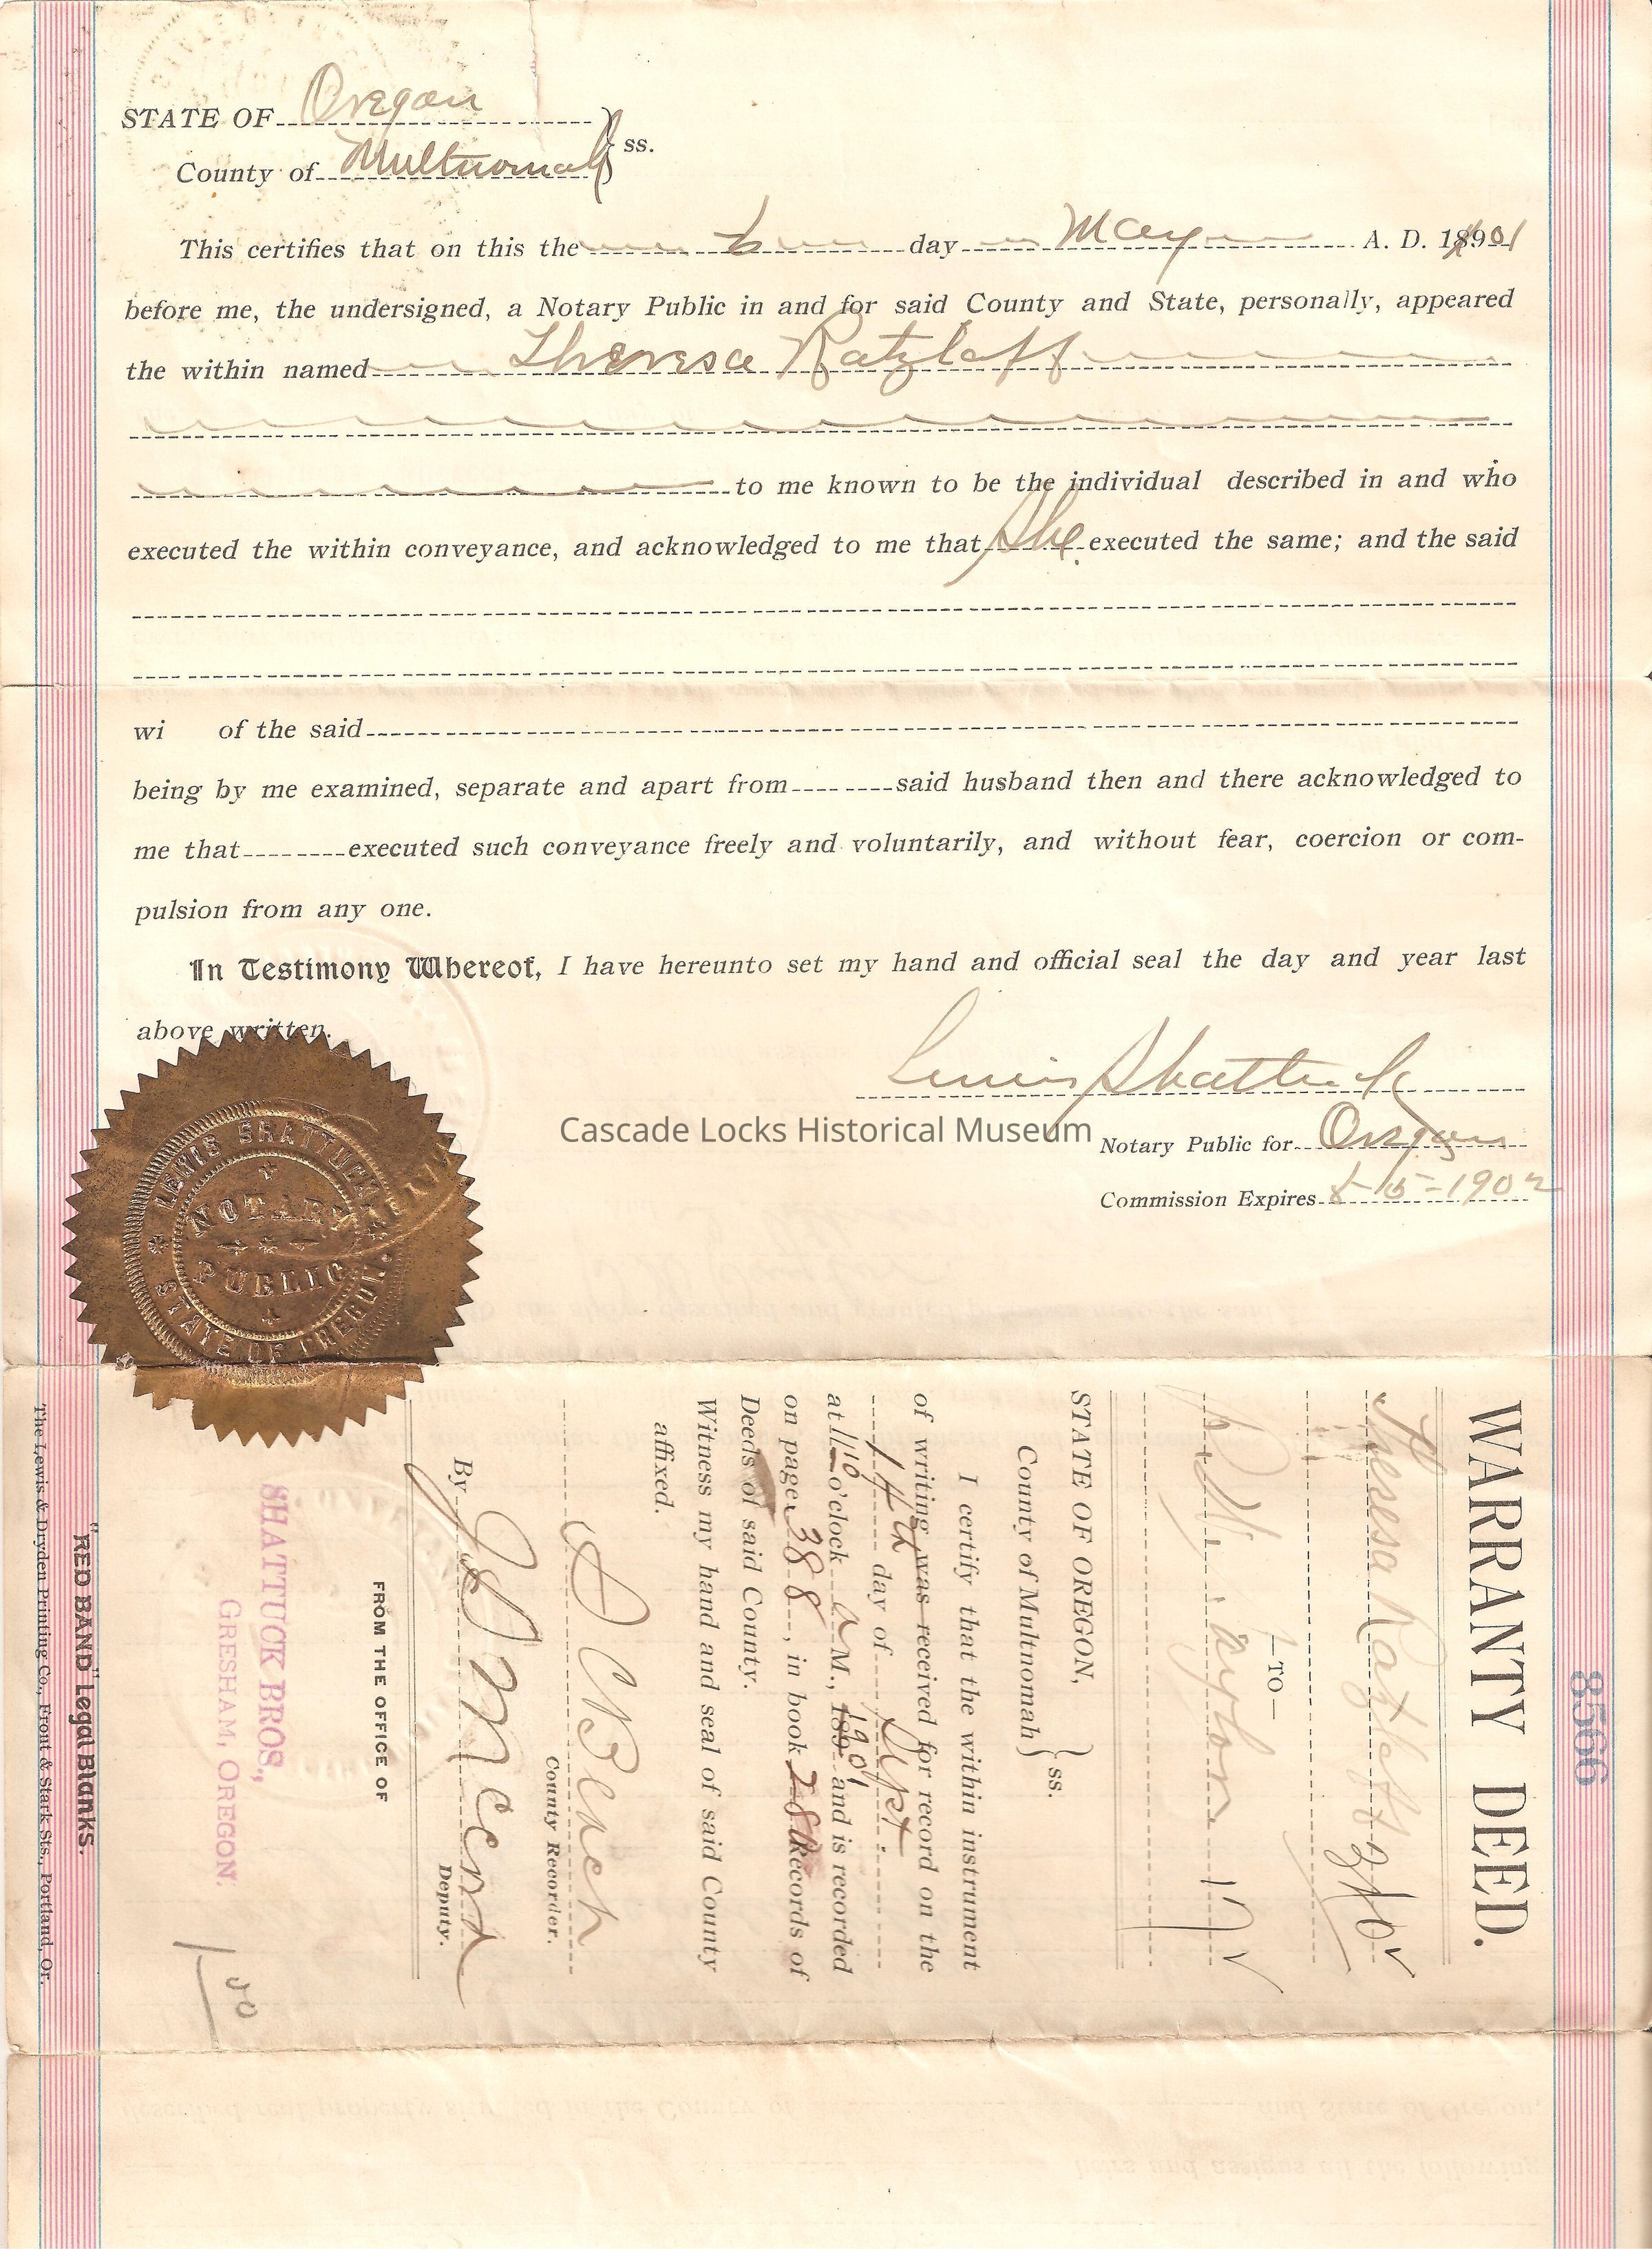 STATE OF Oregon
County of Multnomah } ss.
This certifies that on this the day May A. D. 1901
before me, the undersigned, a Notary Public in and for said County and State, personally, appeared
the within named Theresa Ratzlaff
to me known to be the individual described in and who
executed the within conveyance, and acknowledged to me that She executed the same; and the said
wi of the said
being by me examined, separate and apart from said husband then and there acknowledged to
me that executed such conveyance freely and voluntarily, and without fear, coercion or com-
pulsion from any one.
In Testimony Whereof, I have hereunto set my hand and official seal the day and year last
above written.
Lewis Shattuck
Cascade Locks Historical Museum
Notary Public for Oregon
Commission Expires 1902
LEWIS SHATTUCK
NOTARY
PUBLIC
STATE OF OREGON.
8566
WARRANTY DEED.
Theresa Ratzlaff
—TO—
STATE OF OREGON,
County of Multnomah } ss.
I certify that the within instrument
of writing was received for record on the
14th day of Sept.
at 11 10 o'clock a M., 189 1901 and is recorded
on page 388, in book 280 Records of
Deeds of said County.
Witness my hand and seal of said County
affixed.
County Recorder.
By
Deputy.
FROM THE OFFICE OF
SHATTUCK BROS.,
GRESHAM, OREGON.
1 50
"RED BAND" Legal Blanks.
The Lewis & Dryden Printing Co., Front & Stark Sts., Portland, Or.